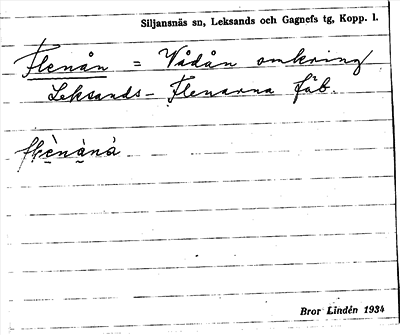 Siljansnäs sn, Leksands och Gagnefs tg, Kopp. l.
Flenån = Vådån omkring
Leksands-Flenarna fäb.
Bror Lindén 1934